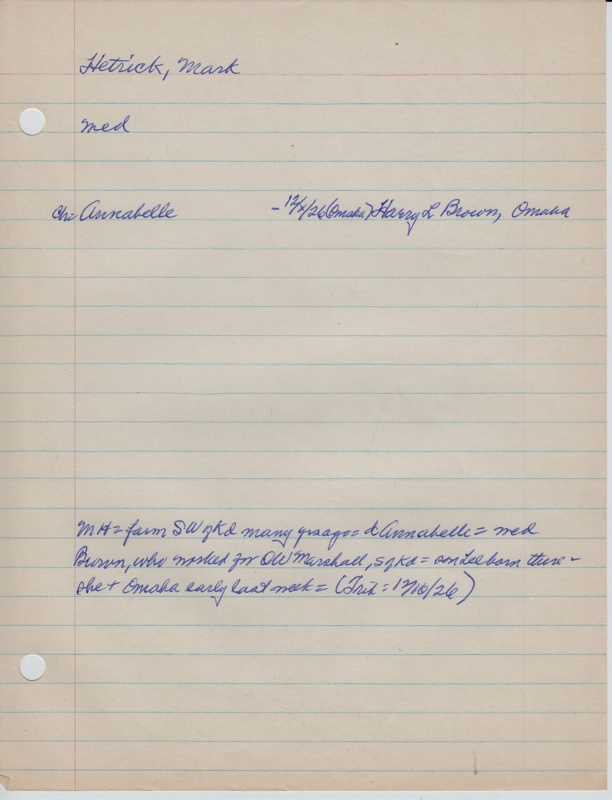 Hetrick, Mark
med
ch= Annabelle - 12/x/26 (Omaha) Harry L Brown, Omaha
MH = farm SW of Kd many yrs ago = d Annabelle = med
Brown, who worked for OW Marshall, S of Kd = son Lee born there -
she + Omaha early last week = (Trib: 12/10/26)